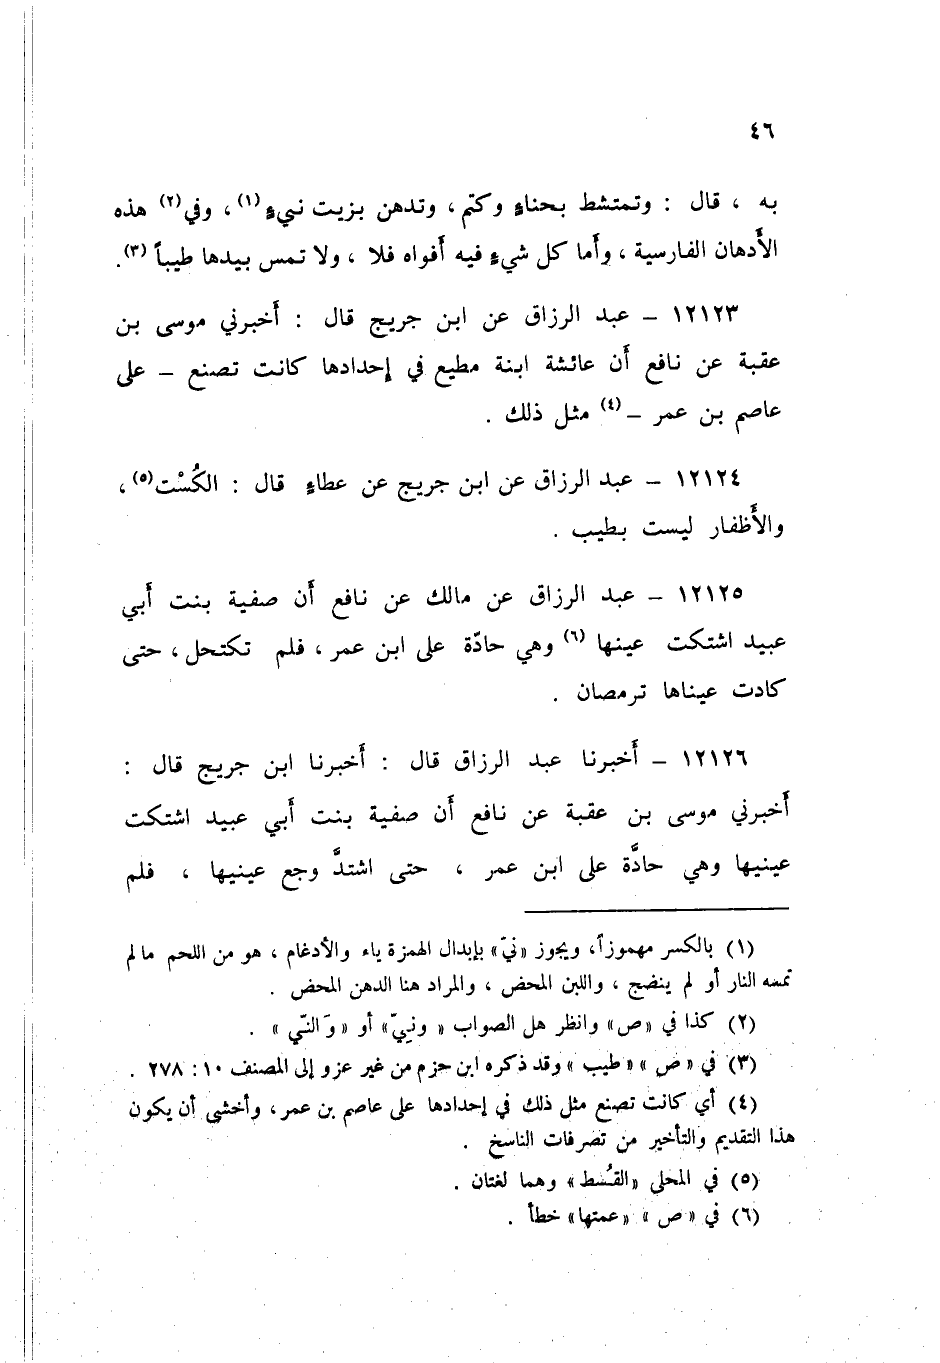 ٤٦
به ، قال : وتمتشط بحناءٍ وكتم ، وتدهن بزيت نيءٍ (١) ، وفي (٢) هذه
الأدهان الفارسية ، وأما كل شيءٍ فيه أفواه فلا ، ولا تمس بيدها طيباً (٣) .
١٢١٢٣ – عبد الرزاق عن ابن جريج قال : أخبرني موسى بن
عقبة عن نافع أن عائشة ابنة مطيع في إحدادها كانت تصنع – على
عاصم بن عمر – (٤) مثل ذلك .
١٢١٢٤ – عبد الرزاق عن ابن جريج عن عطاءٍ قال : الكُسْت (٥) ،
والأظفار ليست بطيب .
١٢١٢٥ – عبد الرزاق عن مالك عن نافع أن صفية بنت أبي
عبيد اشتكت عينها (٦) وهي حادّة على ابن عمر ، فلم تكتحل ، حتى
كادت عيناها ترمصان .
١٢١٢٦ – أخبرنا عبد الرزاق قال : أخبرنا ابن جريج قال :
أخبرني موسى بن عقبة عن نافع أن صفية بنت أبي عبيد اشتكت
عينيها وهي حادَّة على ابن عمر ، حتى اشتدَّ وجع عينيها ، فلم
(١) بالكسر مهموزاً، ويجوز «نيّ» بإبدال الهمزة ياء والأدغام ، هو من اللحم مالم
تمسه النار أو لم ينضج ، واللبن المحض ، والمراد هنا الدهن المحض .
(٢) كذا في «ص» وانظر هل الصواب « ونيّ» أو «وَالنّي » .
(٣) في « ص » « طيب » وقد ذكره ابن حزم من غير عزو إلى المصنف ١٠ : ٢٧٨ .
(٤) أي كانت تصنع مثل ذلك في إحدادها على عاصم بن عمر، وأخشى أن يكون
هذا التقديم والتأخير من تصرفات الناسخ .
(٥) في المحلى «القُسط» وهما لغتان .
(٦) في « ص » «عمتها» خطأ .